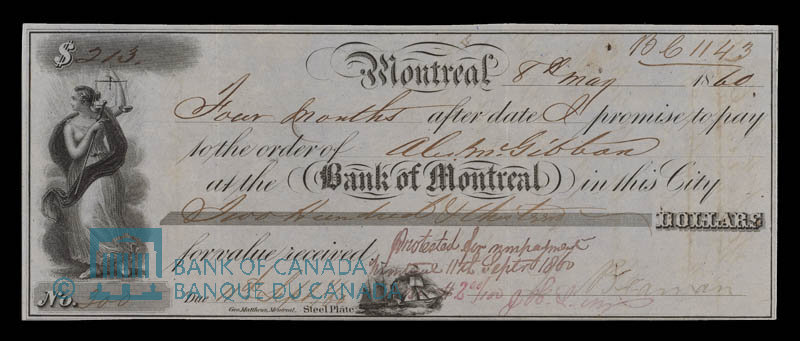 $ 213.
B C 1143
Montreal 8th May 1860
Four Months after date I promise to pay
to the order of Alx. McGibbon
at the Bank of Montreal in this City
Two Hundred & Thirteen DOLLARS
for value received
Protested for nonpayment
11th Septr 1860
BANK OF CANADA
BANQUE DU CANADA
No.
Due
Geo. Matthews, Montreal. Steel Plate